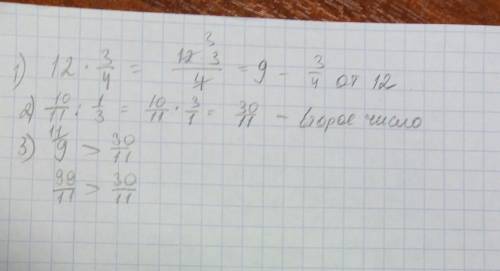 1) 12 · 3/4 = 12 3 3/4 = 9 – 3/4 от 12
2) 10/11 : 1/3 = 10/11 · 3/1 = 30/11 – второе число
3) 11 9 > 30/11
99/11 > 30/11